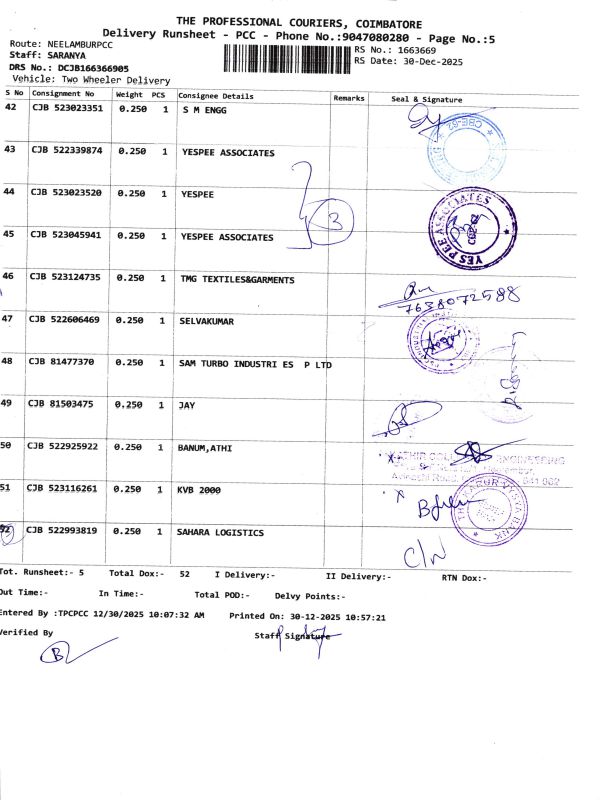 THE PROFESSIONAL COURIERS, COIMBATORE
Delivery Runsheet - PCC - Phone No.:9047080280 - Page No.:5
Route: NEELAMBURPCC
RS No.: 1663669
Staff: SARANYA
RS Date: 30-Dec-2025
DRS No.: DCJB166366905
Vehicle: Two Wheeler Delivery
S No Consignment No Weight PCS Consignee Details Remarks Seal & Signature
42 CJB 523023351 0.250 1 S M ENGG
43 CJB 522339874 0.250 1 YESPEE ASSOCIATES
44 CJB 523023520 0.250 1 YESPEE
3
YES PEE ASSOCIATES
45 CJB 523045941 0.250 1 YESPEE ASSOCIATES
46 CJB 523124735 0.250 1 TMG TEXTILES&GARMENTS
7638072588
47 CJB 522606469 0.250 1 SELVAKUMAR
48 CJB 81477370 0.250 1 SAM TURBO INDUSTRI ES P LTD
49 CJB 81503475 0.250 1 JAY
50 CJB 522925922 0.250 1 BANUM,ATHI
51 CJB 523116261 0.250 1 KVB 2000
52 CJB 522993819 0.250 1 SAHARA LOGISTICS
C/N
Tot. Runsheet:- 5 Total Dox:- 52 I Delivery:- II Delivery:- RTN Dox:-
Out Time:- In Time:- Total POD:- Delvy Points:-
Entered By :TPCPCC 12/30/2025 10:07:32 AM Printed On: 30-12-2025 10:57:21
Verified By Staff Signature